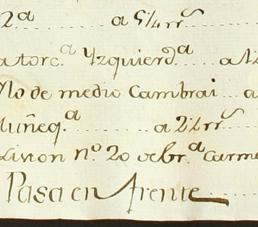 2ª ...... a 5½ rrˢ
atorc.ª Yzquierdª ..... a 12
Ylo de medio Cambrai ... a
uñeq.ª ......... a 2½ rrˢ
Liston nº. 20 ocbr.ª Carme
Pasa en frente